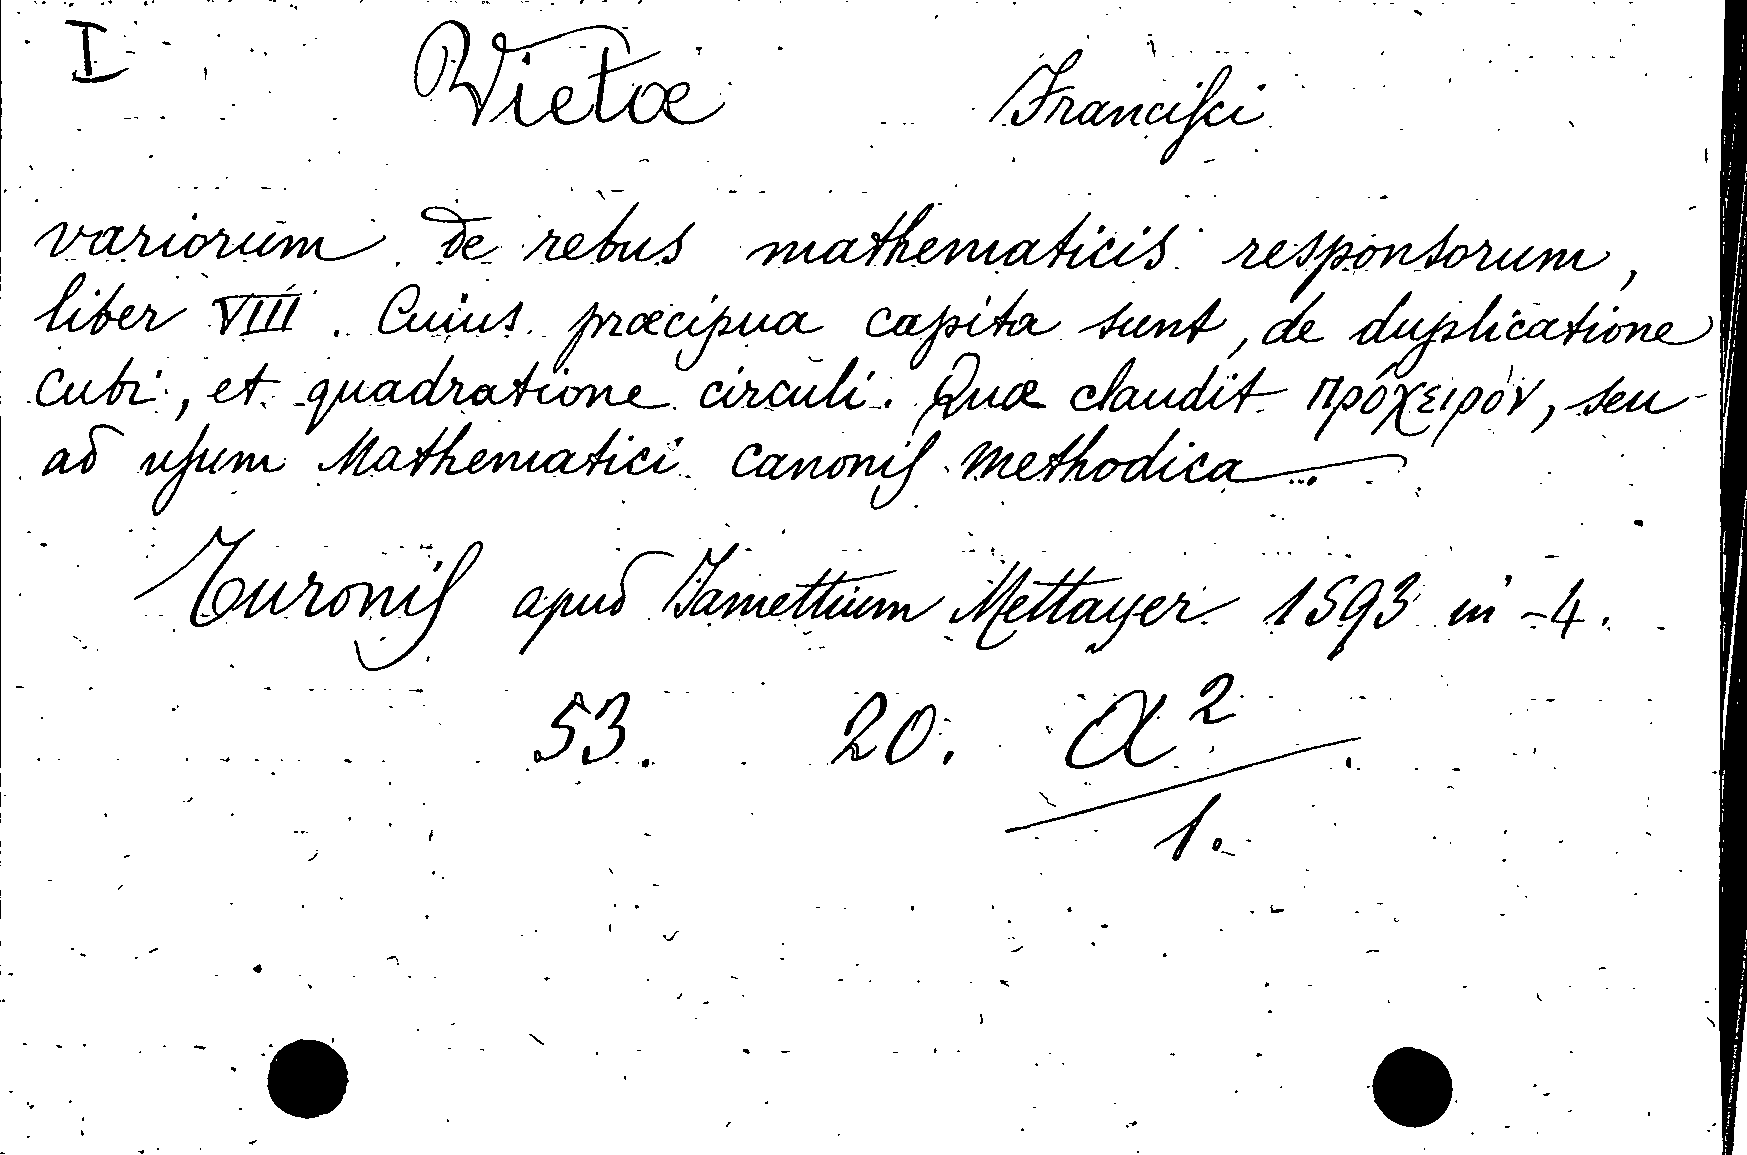 I Vietæ Francisci
variorum de rebus mathematicis responsorum,
liber VIII. Cuius præcipua capita sunt, de duplicatione
cubi, et quadratione circuli. Quæ claudit πρόχειρόν, seu
ad usum Mathematici canonis methodica...
Turonis apud Iamettium Mettayer 1593 in -4.
53. 20. a²
1.